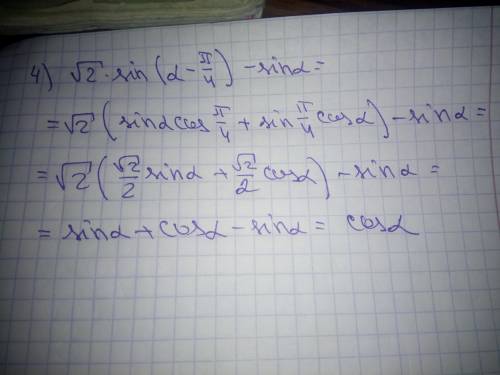 4) √2 · sin(α - π/4) - sinα =
= √2 (sinα cos π/4 + sin π/4 cosα) - sinα =
= √2 (√2/2 sinα + √2/2 cosα) - sinα =
= sinα + cosα - sinα = cosα